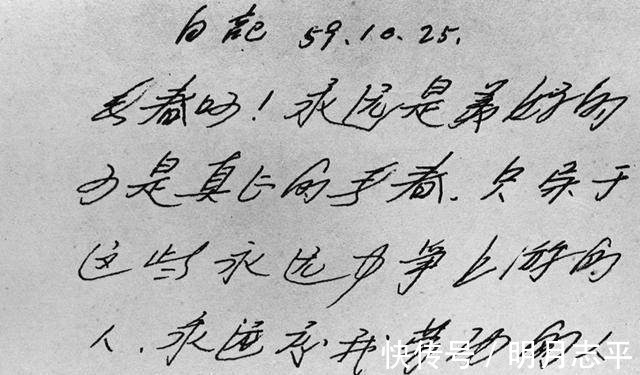 日記 59.10.25.
青春！永远是美好的
可是真正的青春，只属于
这些永远力争上游的
人，永远忘我劳动的人
快传号 / 明月志平